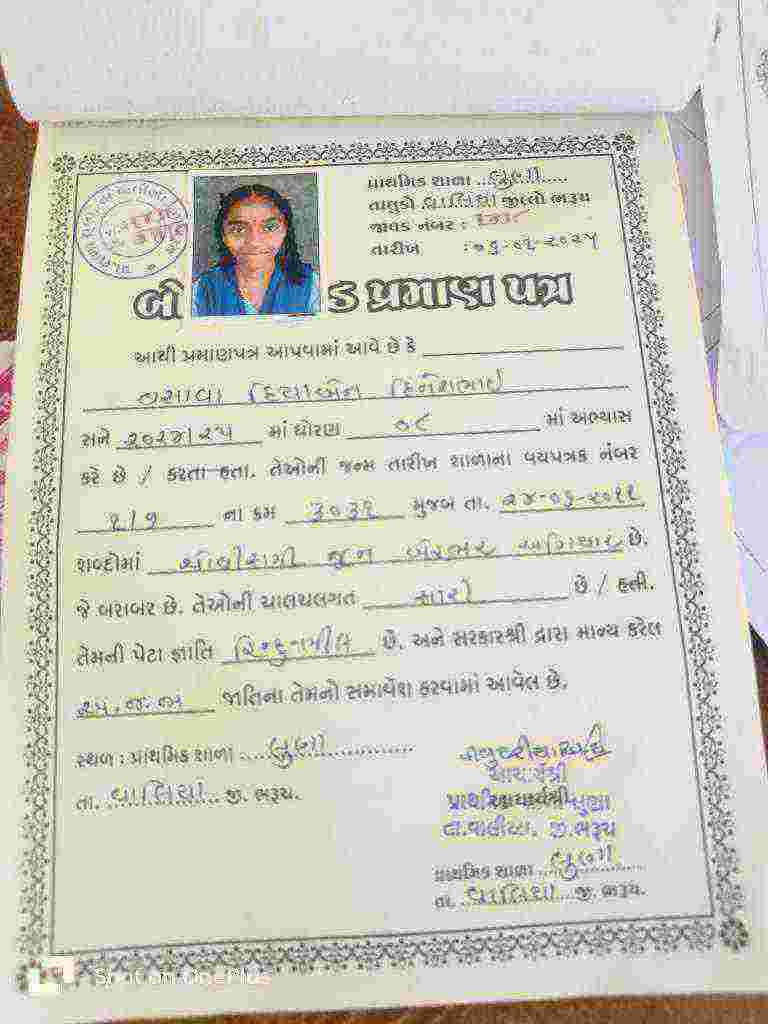 પ્રાથમિક શાળા ...લુણા.....
તાલુકો વાલિયા જીલ્લો ભરૂચ
જાવક નંબર :
તારીખ : ૦૬-૦૫-૨૦૨૫
બો ડ પ્રમાણ પત્ર
આથી પ્રમાણપત્ર આપવામાં આવે છે કે
વસાવા દિવ્યાબેન દિનેશભાઇ
સને ૨૦૨૪/૨૫ માં ધોરણ ૦૮ માં અભ્યાસ
કરે છે / કરતા હતા. તેઓની જન્મ તારીખ શાળાના વયપત્રક નંબર
૧/૭ ના ક્રમ ૩૦૩૧ મુજબ તા. ૨૪-૦૬-૨૦૧૧
શબ્દોમાં ચોવીસમી જૂન બેહજાર અગિયાર છે.
જે બરાબર છે. તેઓની ચાલચલગત સારી છે / હતી.
તેમની પેટા જ્ઞાતિ હિન્દુ ભીલ છે. અને સરકારશ્રી દ્વારા માન્ય કરેલ
અ.જ.જા જાતિના તેમનો સમાવેશ કરવામાં આવેલ છે.
સ્થળ : પ્રાથમિક શાળા ....લુણા...............
તા. .વાલિયા... જી. ભરૂચ.
આચાર્યશ્રી
તા.વાલીયા, જી.ભરૂચ
પ્રાથમિક શાળા ..લુણા......
તા. ...વાલિયા... જી. ભરૂચ.
Shot on OnePlus